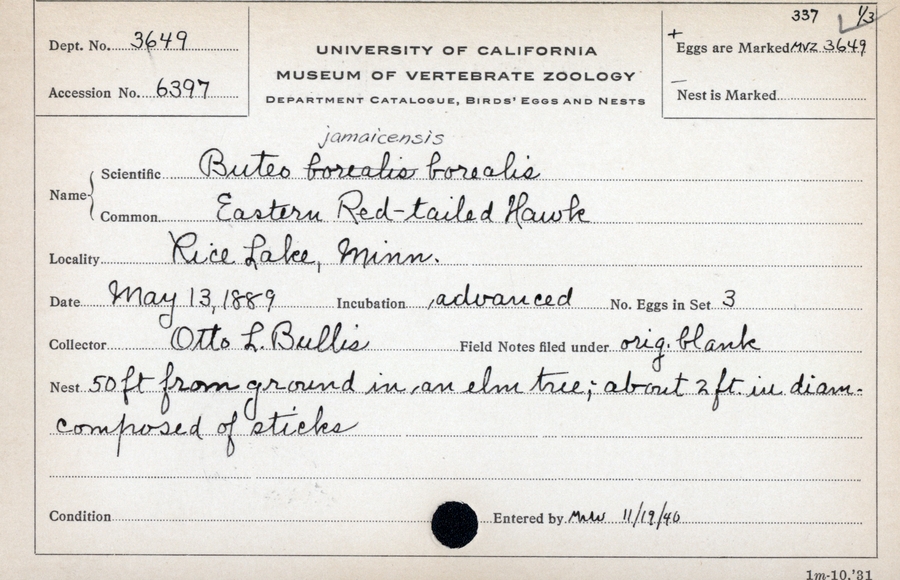 337 1/3
Dept. No. 3649
UNIVERSITY OF CALIFORNIA
MUSEUM OF VERTEBRATE ZOOLOGY
DEPARTMENT CATALOGUE, BIRDS' EGGS AND NESTS
+ Eggs are Marked MVZ 3649
Accession No. 6397
— Nest is Marked
jamaicensis
Name
Scientific Buteo borealis borealis
Common Eastern Red-tailed Hawk
Locality Rice Lake, Minn.
Date May 13, 1889 Incubation advanced No. Eggs in Set 3
Collector Otto L. Bullis Field Notes filed under orig. blank
Nest 50 ft from ground in an elm tree; about 2 ft. in diam-
composed of sticks
Condition Entered by 11/19/40
1m-10,'31